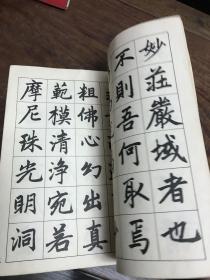 妙莊嚴域者也
不則吾何取焉
粗佛心幻出真
範模清淨宛若
摩尼珠光明洞